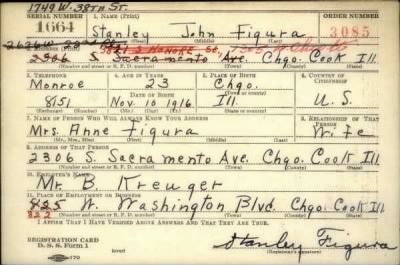 1749 W. 38TH ST.
SERIAL NUMBER 1. NAME (Print) ORDER NUMBER
1664 Stanley John Figura 3085
(First) (Middle) (Last)
2306 S. Sacramento Ave. Chgo. Cook Ill.
(Number and street or R. F. D. number) (Town) (County) (State)
3. TELEPHONE 4. AGE IN YEARS 5. PLACE OF BIRTH 6. COUNTRY OF CITIZENSHIP
Monroe 23 Chgo.
DATE OF BIRTH (Town or county)
8151 Nov. 10 1916 Ill. U. S.
(Mo.) (Day) (Yr.) (State or country)
7. NAME OF PERSON WHO WILL ALWAYS KNOW YOUR ADDRESS 8. RELATIONSHIP OF THAT PERSON
Mrs. Anne Figura Wife
(Mr., Mrs., Miss) (First) (Middle) (Last)
9. ADDRESS OF THAT PERSON
2306 S. Sacramento Ave. Chgo. Cook Ill
(Number and street or R. F. D. number) (Town) (County) (State)
10. EMPLOYER'S NAME
Mr. B. Kreuger
11. PLACE OF EMPLOYMENT OR BUSINESS
825 W. Washington Blvd. Chgo. Cook Ill
822 (Number and street or R. F. D. number) (Town) (County) (State)
I AFFIRM THAT I HAVE VERIFIED ABOVE ANSWERS AND THAT THEY ARE TRUE.
REGISTRATION CARD
D. S. S. Form 1 (over) Stanley Figura
(Registrant's signature)